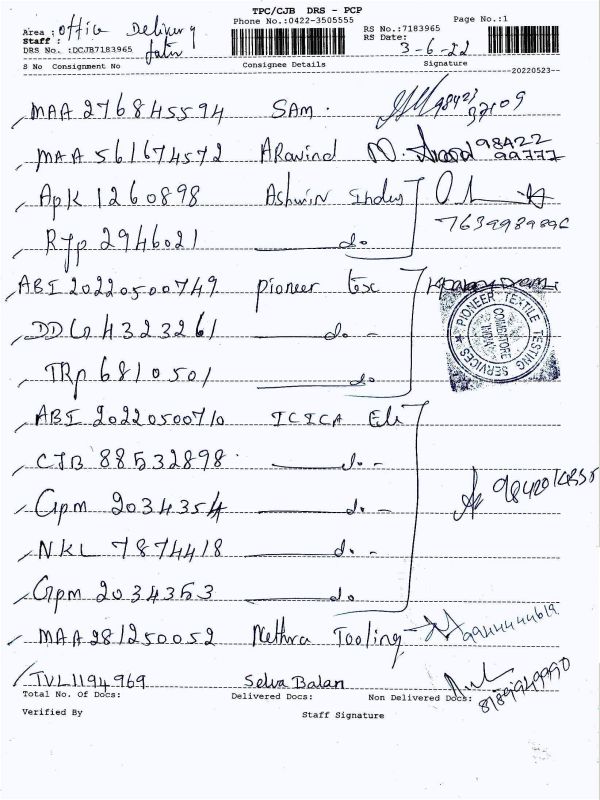 TPC/CJB DRS - PCP
Phone No.:0422-3505555
Page No.:1
Area : office Delivery
Staff :
DRS No. :DCJB7183965
RS No.:7183965
RS Date: 3-6-22
S No Consignment No Consignee Details Signature
20220523--
MAA 276845594 SAM.
MAA 561674572 ARavind 98422 99777
Apk 1260898 Ashwin
RJP 2946021 do
7639989896
ABI 20220500749 pioneer tex
DDG 4323261 do -
PIONEER TEXTILE TESTING SERVICES
COIMBATORE INDIA
TRP 6810501 do
ABI 20220500710 ICICA
CJB 88532898 do -
GPM 2034354 do -
NKL 7874418 do -
GPM 2034353 do
MAA 281250052 Nethra Tooling 9944444619
TVL1194969 Selva Balan
Total No. Of Docs: Delivered Docs: Non Delivered Docs:
Verified By Staff Signature